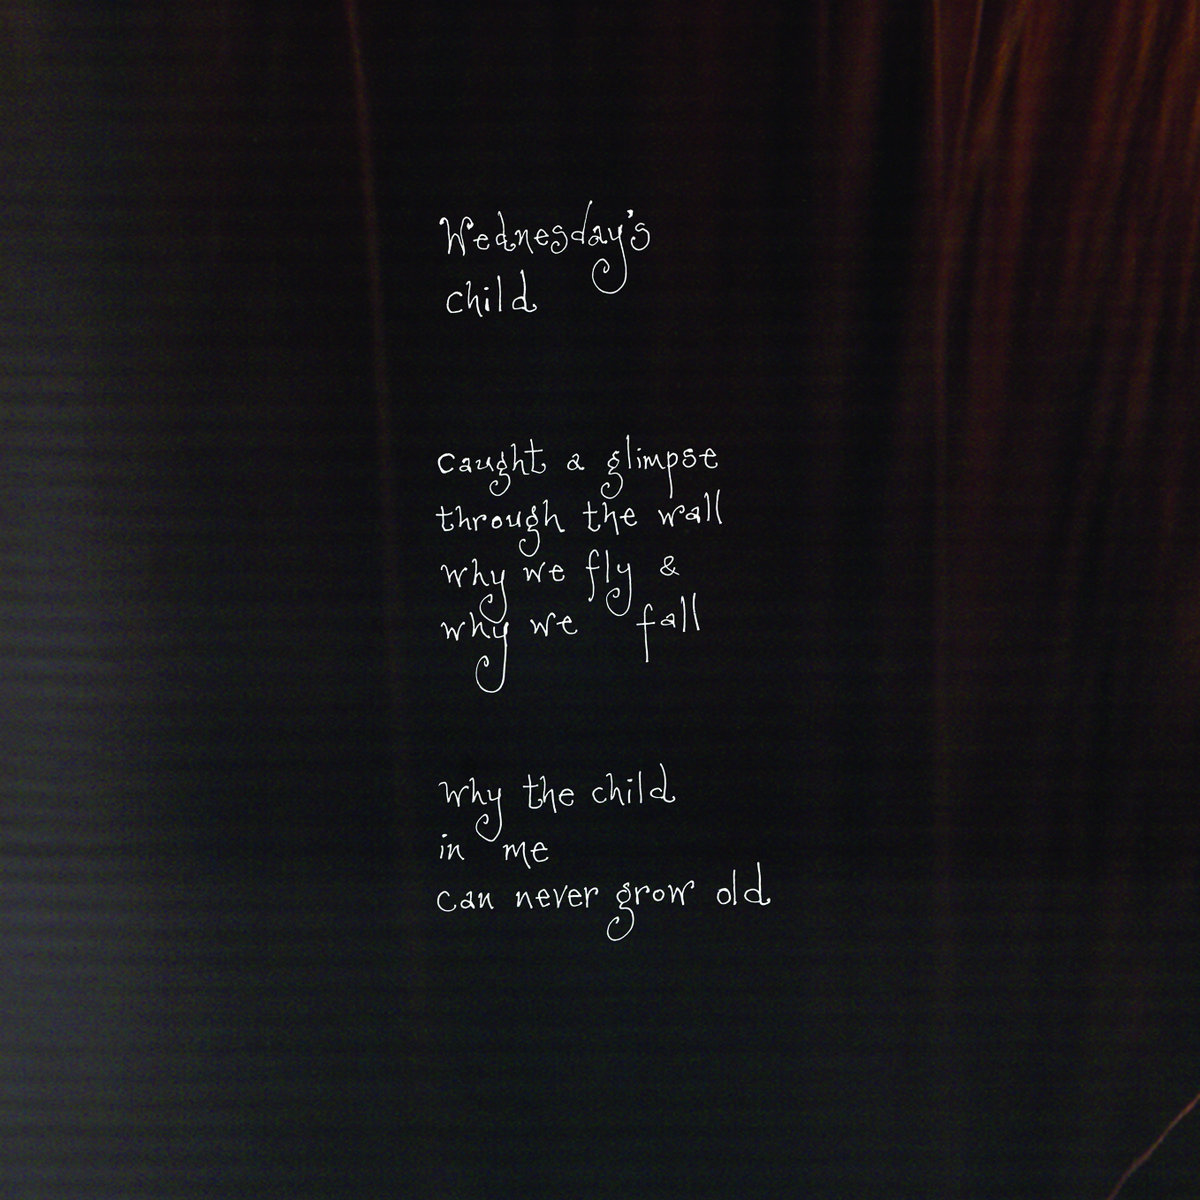 Wednesday's
child
caught a glimpse
through the wall
why we fly &
why we fall
why the child
in me
can never grow old